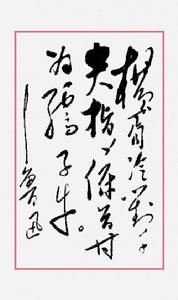 横眉冷对千
夫指，俯首甘
为孺子牛。
鲁迅